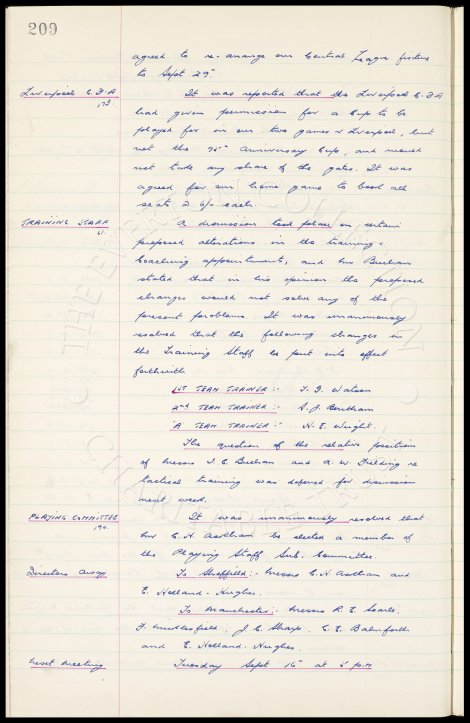 209
agreed to re-arrange our Central League fixture
to Sept 29th
Liverpool C.F.A
178.
It was reported that the Liverpool C.F.A
had given permission for a Cup to be
played for in our two games v Liverpool, but
not the 75th Anniversary Cup, and would
not take any share of the gates. It was
agreed for our home game to book all
seats @ 6/- each.
TRAINING STAFF
61.
A discussion took place on certain
proposed alterations in the training &
Coaching appointments, and Mr Buchan
stated that in his opinion the proposed
changes would not solve any of the
present problems. It was unanimously
resolved that the following changes in
the Training Staff be put into effect
forthwith
1ST TEAM TRAINER:- T. G. Watson
2nd TEAM TRAINER:- S. J. Bentham
A TEAM TRAINER:- H. E. Wright.
The question of the relative positions
of Messrs I. C. Buchan and A. W. Fielding re
tactical training was deferred for discussion
next week.
PLAYING COMMITTEE
190.
It was unanimously resolved that
Mr C. H. Askham be elected a member of
the Playing Staff Sub. Committee.
Directors Away
To Sheffield:- Messrs C. H. Askham and
E. Holland-Hughes.
To Manchester:- Messrs R. E. Searle,
F. Micklesfield, J. C. Sharp, C. E. Balmforth
and E. Holland-Hughes.
Next Meeting
Tuesday Sept 16th at 5 p.m